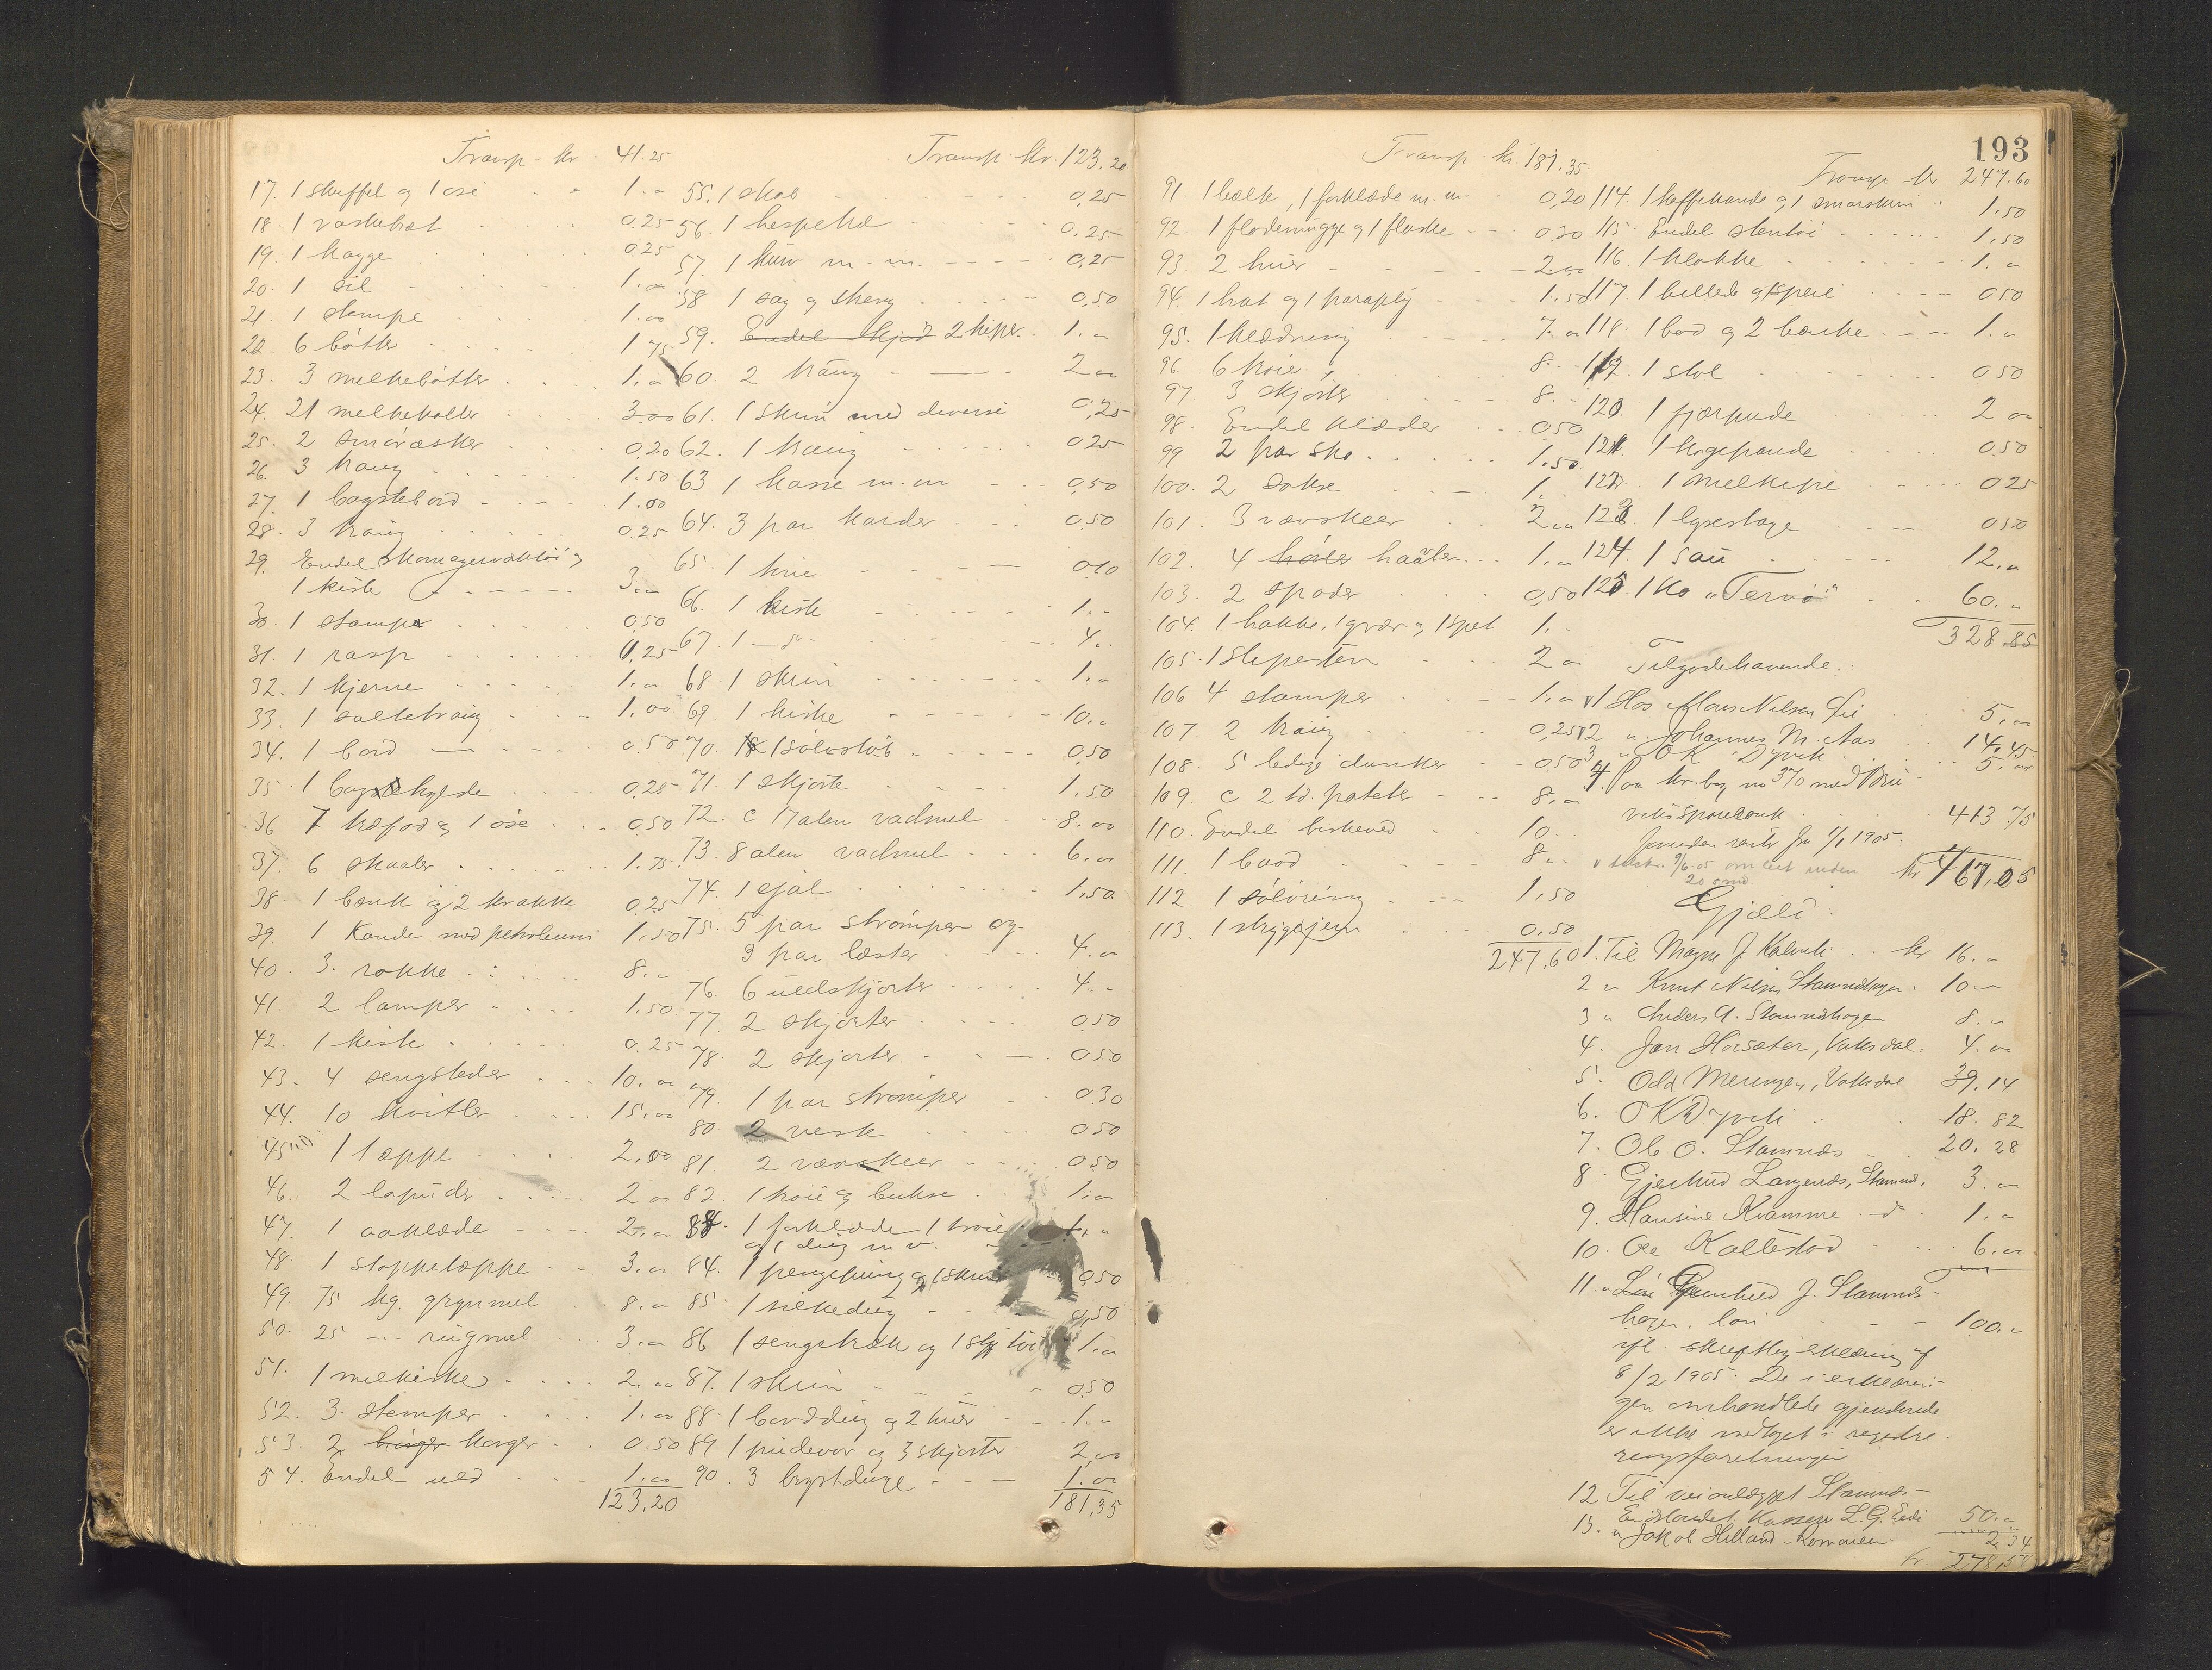 Transp. kr. 41.25
17. 1 skuffel og 1 øse 1.00
18. 1 vaskebøt 0.25
19. 1 kagge 0.25
20. 1 sil 1.00
21. 1 stampe 1.00
22. 6 bøtter 1 75
23. 3 melkebøtter 1.00
24. 21 melkekoller 3.00
25. 2 smøræsker 0.20
26. 3 traug 1.50
27. 1 bagstebord 1.00
28. 3 traug 0.25
29. Endel skomagerværktøi og
1 kiste 3.00
30. 1 stampe 0.50
31. 1 rasp 0,25
32. 1 kjerne 1.00
33. 1 saltetraug 1.00
34. 1 bord 0.50
35. 1 bagstehylde 0.25
36 7 træfad og 1 øse 0.50
37. 6 skaaler 1.75
38. 1 bænk og 2 krakke 0.25
39. 1 Kande med petroleum 1.50
40. 3. rokke 8.00
41. 2 lamper 1.50
42. 1 kiste 0.25
43. 4 sengsteder 10.00
44. 10 kvitler 15.00
45 1 tæppe 2,00
46. 2 laputer 2 00
47. 1 aaklæde 2.00
48. 1 stoppetæppe 3.00
49. 75 kg. grynmel 8.00
50. 25 - rugmel 3.00
51. 1 melkiste 2.00
52. 3. stamper 1.00
53. 2 korger 0.50
54. Endel ved 1.00
123,20
Transp. kr. 123.20
55. 1 skab 0,25
56. 1 hespetræ 0.25
57. 1 kurv m.m. 0,25
58 1 sag og stang 0,50
59. Endel skjød 2 kiper. 1.00
60. 2 traug 2 00
61. 1 skrin med diverse 0,25
62. 1 traug 0 25
63 1 kasse m.m 0,50
64. 3 par karder 0.50
65. 1 hue 0,10
66. 1 kiste 1.-
67. 1 - do - 4..
68. 1 skrin 1.00
69. 1 kiste 10.00
70. 1 sølvstøb 0,50
71. 1 skjorte 1.50
72. c 17 alen vadmel 8.00
73. 8 alen vadmel 6.00
74. 1 sjal 1.50
75. 5 par strømper og
3 par læster 4.00
76. 6 uldskjorter 4..
77. 2 skjorter 0,50
78. 2 skjorter 0 50
79. 1 par strømper 0.30
80. 2 veste 0 50
81. 2 vævskeer 0.50
82. 1 trøie og bukse 1.00
83. 1 forklæde 1 trøie
og 1 dug m.v. 1.00
84. 1 pengepung og 1 skrin 0,50
85. 1 silkedug 0,50
86 1 sengetræk og 1 1.00
87. 1 skrin 0.50
88. 1 borddug og 2 huer 1.00
89 1 pudevar og 3 skjorter 2,00
90. 3 brystduge 1.00
181,35
Transp. kr. 181.35.
91. 1 bælte, 1 forklæde m.m. 0,20
92. 1 flødemugge og 1 flaske 0.30
93. 2 huer 2.00
94. 1 hat og 1 paraply 1.50
95. 1 klædning 7.00
96. 6 trøie 8.-
97 3 skjorter 8.-
98. Endel klæder 0.50
99 2 par sko 1.50
100. 2 sakse 1.
101. 3 vævskeer 2.00
102. 4 haavler 1.00
103. 2 spader 0,50
104. 1 hakke, 1 grev og 1 spet 1.
105. 1 slipesten 2 00
106 4 stamper 1.00
107. 2 traug 0,25
108. 5 ledige dunker 0.50
109. c 2 td. poteter 8.00
110. Endel birkeved 10.
111. 1 baad 8..
112. 1 sølvring 1.50
113. 1 strygejern 0.50
247,60
193
Transp. kr 247.60
114. 1 kaffekande og 1 smørskrin 1.50
115. Endel stentøi 1.50
116. 1 klokke 1.00
117. 1 billede og speil 0 50
118. 1 bord og 2 bænke 1.00
119. 1 stol 0 50
120. 1 fjærpude 2 00
121. 1 kagepande 0.50
122. 1 melkipe 0 25
123. 1 lysestage 0 50
124. 1 sau 12.00
125. 1 Ko "Ternø" 60.00
328.85
Tilgodehavende:
1 Hos Mons Nilsen Lie 5.00
2 " Johannes M. Aas 14.45
3 " O K Dyvik 5.00
4 Paa kr. bog no 370 med Bru-
viks Sparebank 413.75
foruden renter fra 1/1 1905.
kr 467,05
Gjæld:
1. Til Magne J. Kalvik kr 16.00
2 " Knut Nilsen Stamneshagen 10.00
3 " Anders A. Stamneshagen 8.00
4. Jan Horsæter, Vaksdal. 4.00
5. Odd Meringen, Vaksdal 39.14
6. O K Dyvik 18.82
7. Ole O. Stamnes 20.28
8. Gjertrud Langenes, Stamnes. 3.00
9. Hansine Kvamme - do 1.00
10. Ole Kallestad 6.00
11. " Gunhild J. Stamnes-
hagen, løn 100.00
ifl. skriftlig erklæring af
8/2 1905. De i erklærin-
gen omhandlede gjenstande
er ikke medtaget i registre-
ringsforretningen
12 Til veianlægget Stamnes-
Eidslandet, Kasserer L.G. Eide 50.00
13. " Jakob Helland - 2.34
kr. 278,58